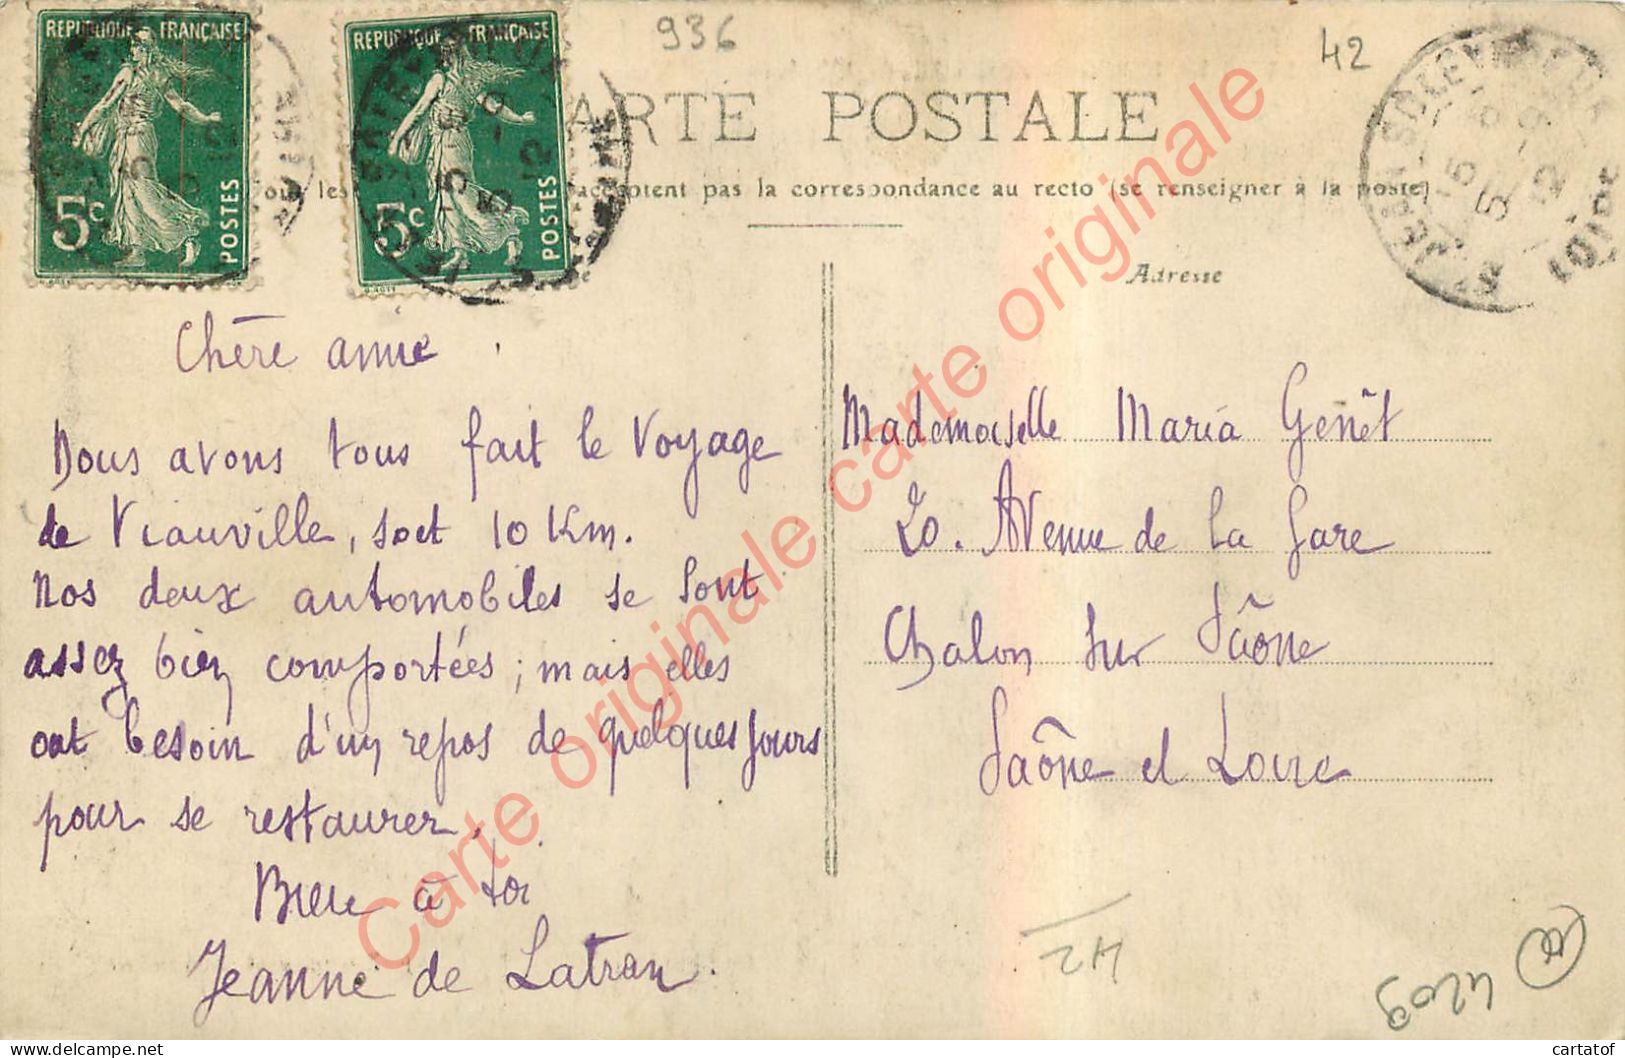 REPUBLIQUE FRANÇAISE
5c POSTES
REPUBLIQUE FRANÇAISE
5c POSTES
936
42
CARTE POSTALE
acceptent pas la correspondance au recto (se renseigner à la poste)
Adresse
Chère amie
Nous avons tous fait le Voyage
de Viauville, soit 10 Km.
Nos deux automobiles se sont
assez bien comportées ; mais elles
ont besoin d'un repos de quelques jours
pour se restaurer.
Bien à toi
Jeanne de Latran.
Mademoiselle Maria Genêt
20. Avenue de la Gare
Chalon sur Saône
Saône et Loire
Carte originale carte originale
42
4209
cartatof